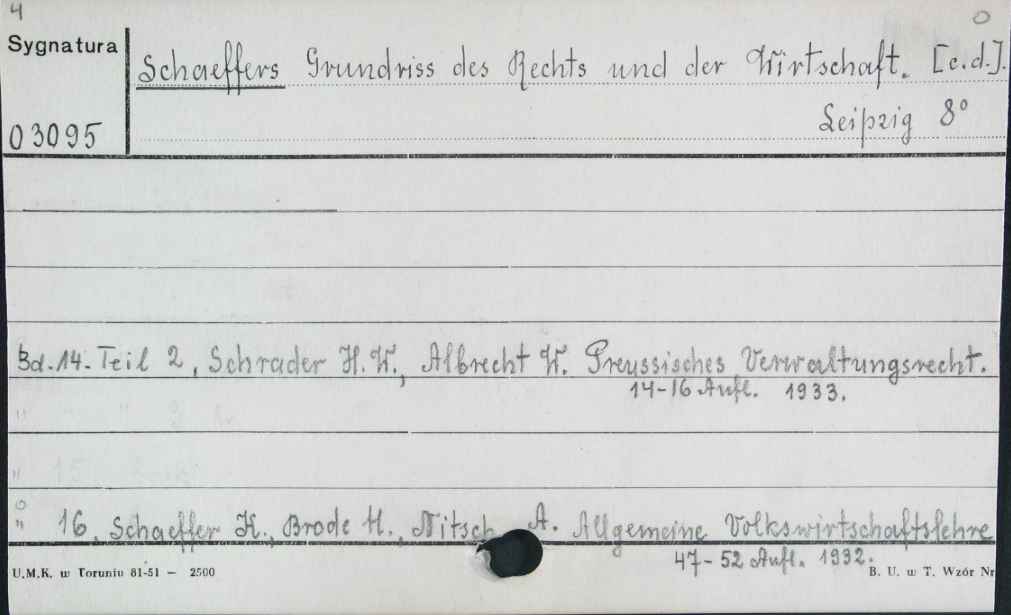 4
Sygnatura
Schaeffers Grundriss des Rechts und der Wirtschaft. [c.d.].
Leipzig 8°
03095
Bd. 14. Teil 2, Schrader H. W., Albrecht W. Preussisches Verwaltungsrecht.
14-16 Aufl. 1933.
"
"
" 16, Schaeffer K., Brode H., Nitsch A. Allgemeine Volkswirtschaftslehre
47-52 Aufl. 1932.
U.M.K. w Toruniu 81-51 — 2500
B. U. w T. Wzór Nr